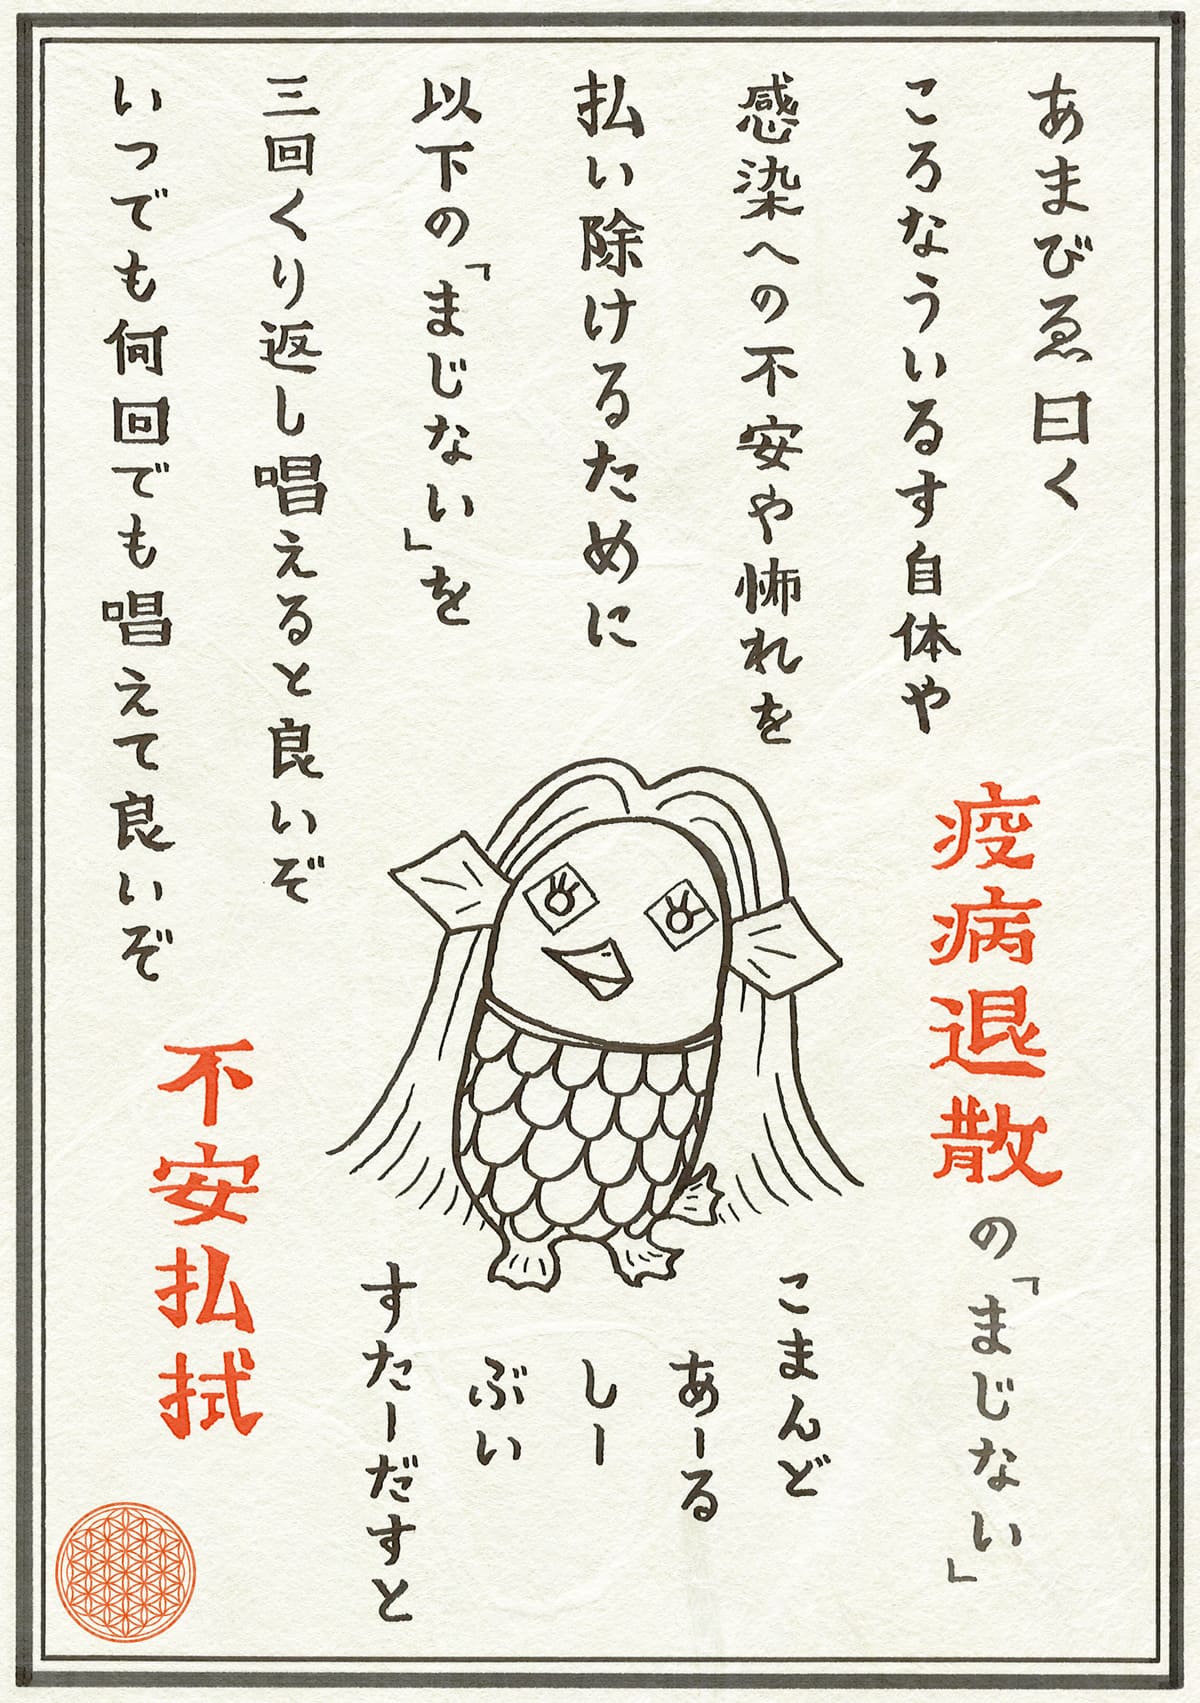 あまびゑ曰く
ころなういるす自体や
感染への不安や怖れを
払い除けるために
以下の「まじない」を
三回くり返し唱えると良いぞ
いつでも何回でも唱えて良いぞ
疫病退散の「まじない」
こまんど
あーる
しー
ぶい
すたーだすと
不安払拭